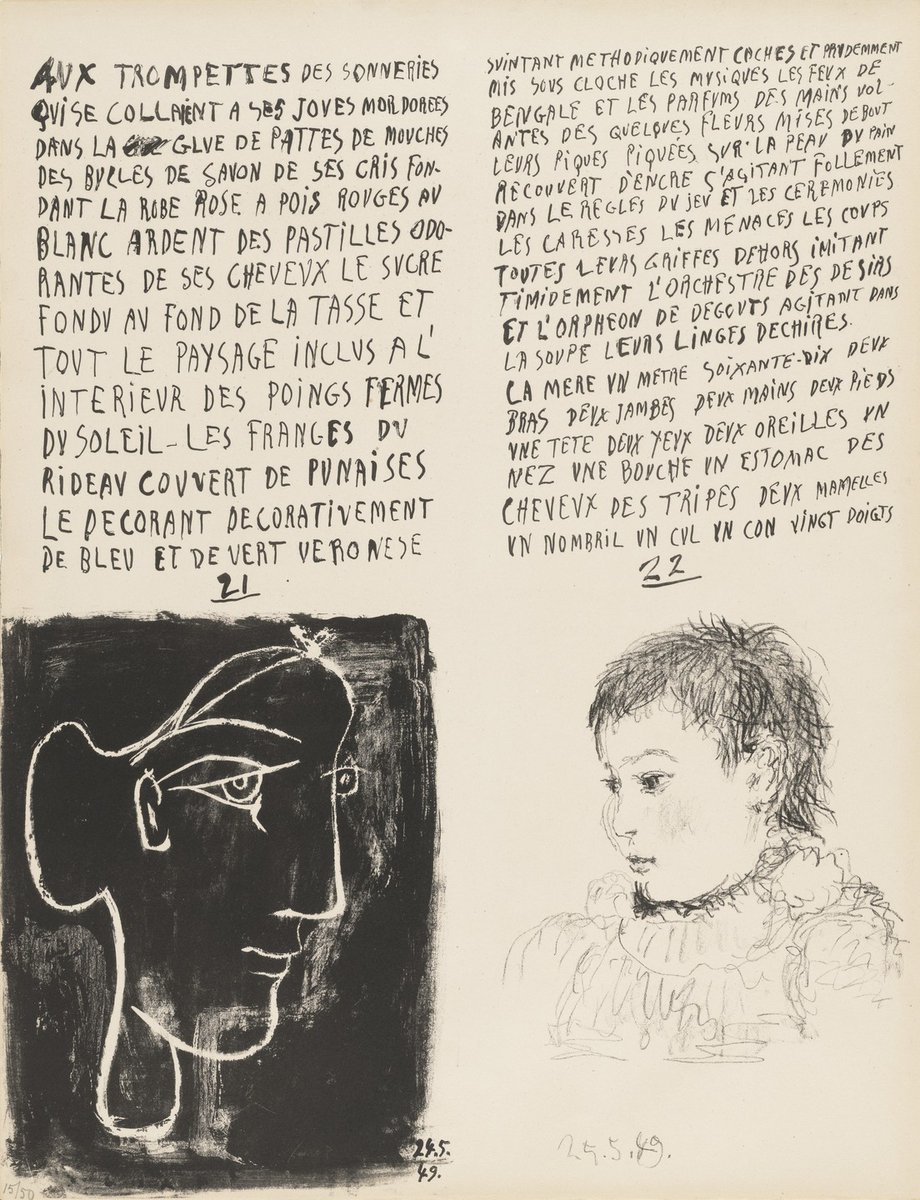 AUX TROMPETTES DES SONNERIES
QUI SE COLLAIENT A SES JOVES MORDOREES
DANS LA GLVE DE PATTES DE MOUCHES
DES BVLLES DE SAVON DE SES CRIS FON-
DANT LA ROBE ROSE A POIS ROUGES AU
BLANC ARDENT DES PASTILLES ODO-
RANTES DE SES CHEVEVX LE SVCRE
FONDV AV FOND DE LA TASSE ET
TOVT LE PAYSAGE INCLVS A L'
INTERIEVR DES POINGS FERMES
DV SOLEIL - LES FRANGES DV
RIDEAV COVVERT DE PVNAISES
LE DECORANT DECORATIVEMENT
DE BLEV ET DE VERT VERONESE
21
SVINTANT METHODIQVEMENT CACHES ET PRVDEMMENT
MIS SOVS CLOCHE LES MVSIQVES LES FEVX DE
BENGALE ET LES PARFVMS DES MAINS VOL-
ANTES DES QVELQVES FLEVRS MISES DEBOVT
LEVRS PIQVES PIQVEES SVR LA PEAV DV PAIN
RECOVVERT D'ENCRE S'AGITANT FOLLEMENT
DANS LE REGLES DV JEV ET LES CEREMONIES
LES CARESSES LES MENACES LES COVPS
TOVTES LEVRS GRIFFES DEHORS IMITANT
TIMIDEMENT L'ORCHESTRE DES DESIRS
ET L'ORPHEON DE DEGOVTS AGITANT DANS
LA SOVPE LEVRS LINGES DECHIRES.
LA MERE VN METRE SOIXANTE-DIX DEVX
BRAS DEVX JAMBES DEVX MAINS DEVX PIEDS
VNE TETE DEVX YEVX DEVX OREILLES VN
NEZ VNE BOVCHE VN ESTOMAC DES
CHEVEVX DES TRIPES DEVX MAMELLES
VN NOMBRIL VN CVL VN CON VINGT DOIGTS
22
24.5.
49.
24.5.49.
15/50